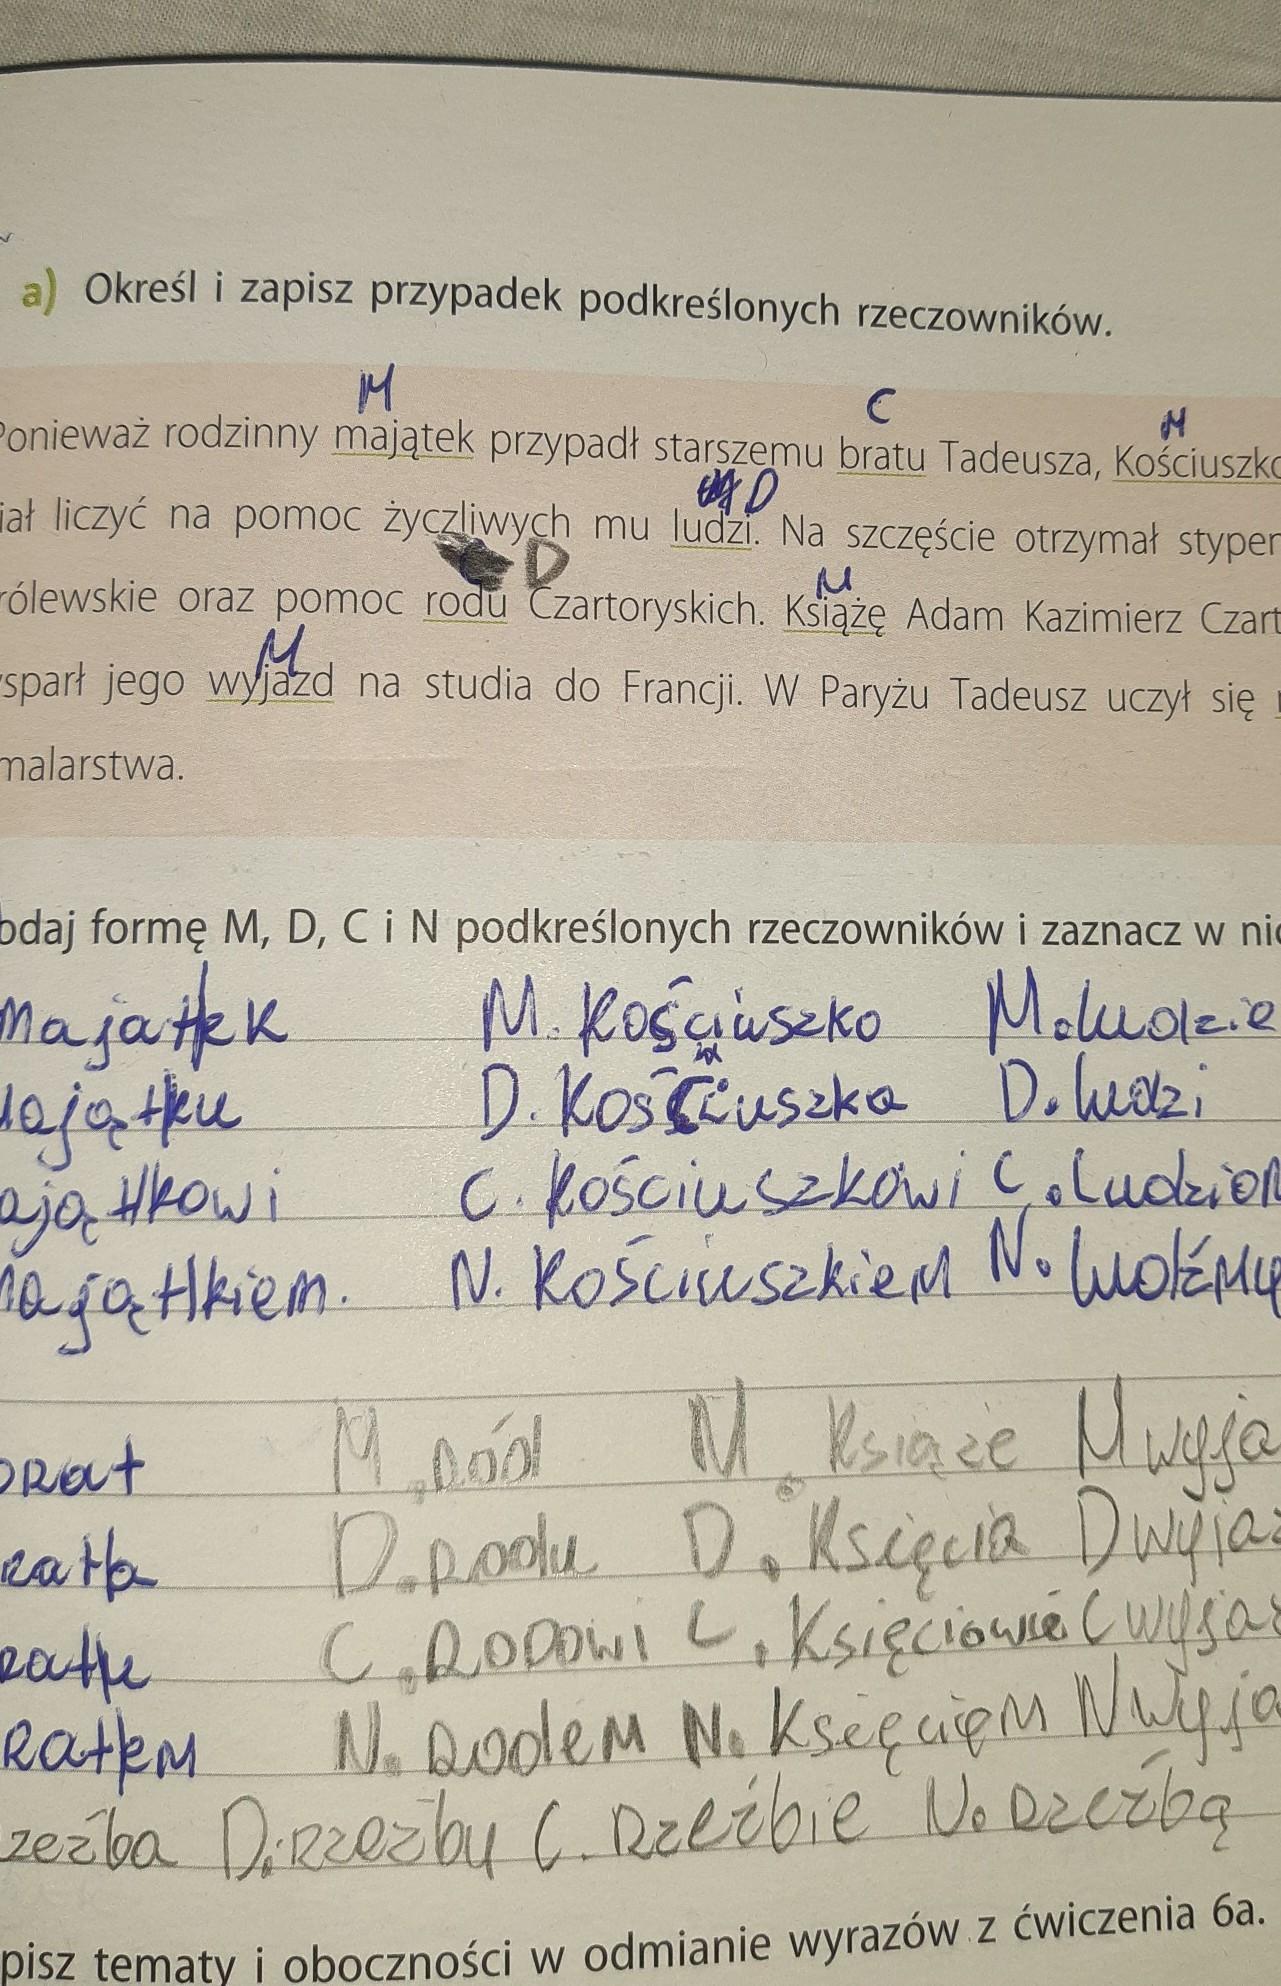 a) Określ i zapisz przypadek podkreślonych rzeczowników.
M C M
Ponieważ rodzinny majątek przypadł starszemu bratu Tadeusza, Kościuszko
D
iał liczyć na pomoc życzliwych mu ludzi. Na szczęście otrzymał stypen
D M
rólewskie oraz pomoc rodu Czartoryskich. Książę Adam Kazimierz Czart
M
sparł jego wyjazd na studia do Francji. W Paryżu Tadeusz uczył się
malarstwa.
odaj formę M, D, C i N podkreślonych rzeczowników i zaznacz w nic
Majatek M. Kościuszko M. ludzie
ajątku D. Kościuszka D. ludzi
ajątkowi C. Kościuszkowi C. Ludziom
ajątkiem. N. Kościuszkiem N. ludźmi
brat M. ród M. Książe M wyja
rata D. rodu D. Księcia D wyjaz
ratu C. Rodowi C. Księciowie C wyjaz
ratem N. Rodem N. Księciem N wyja
zeźba D. rzeźby C. Rzeźbie N. Rzeźbą
pisz tematy i oboczności w odmianie wyrazów z ćwiczenia 6a.